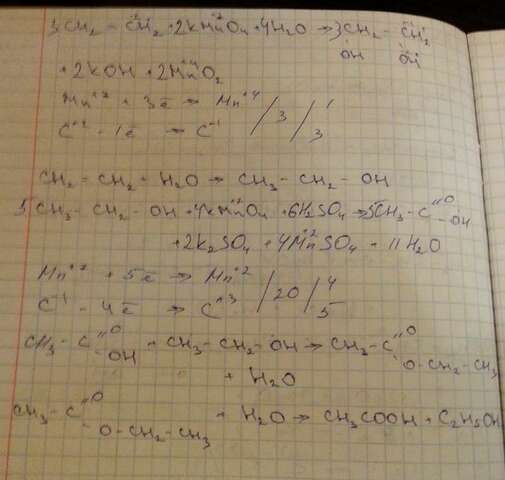 3CH₂ = CH₂ + 2KMnO₄ + 4H₂O → 3CH₂ - CH₂
OH OH
+ 2KOH + 2MnO₂
Mn⁺⁷ + 3ē → Mn⁺⁴ / 3 / 1
C⁻² - 1ē → C⁻¹ / 3
CH₂ = CH₂ + H₂O → CH₃ - CH₂ - OH
5CH₃ - CH₂ - OH + 4KMnO₄ + 6H₂SO₄ → 5CH₃ - C =O - OH
+ 2K₂SO₄ + 4MnSO₄ + 11H₂O
Mn⁺⁷ + 5ē → Mn⁺² / 20 / 4
C⁻¹ - 4ē → C⁺³ / 5
CH₃ - C =O - OH + CH₃ - CH₂ - OH → CH₃ - C =O - O - CH₂ - CH₃
+ H₂O
CH₃ - C =O - O - CH₂ - CH₃ + H₂O → CH₃COOH + C₂H₅OH